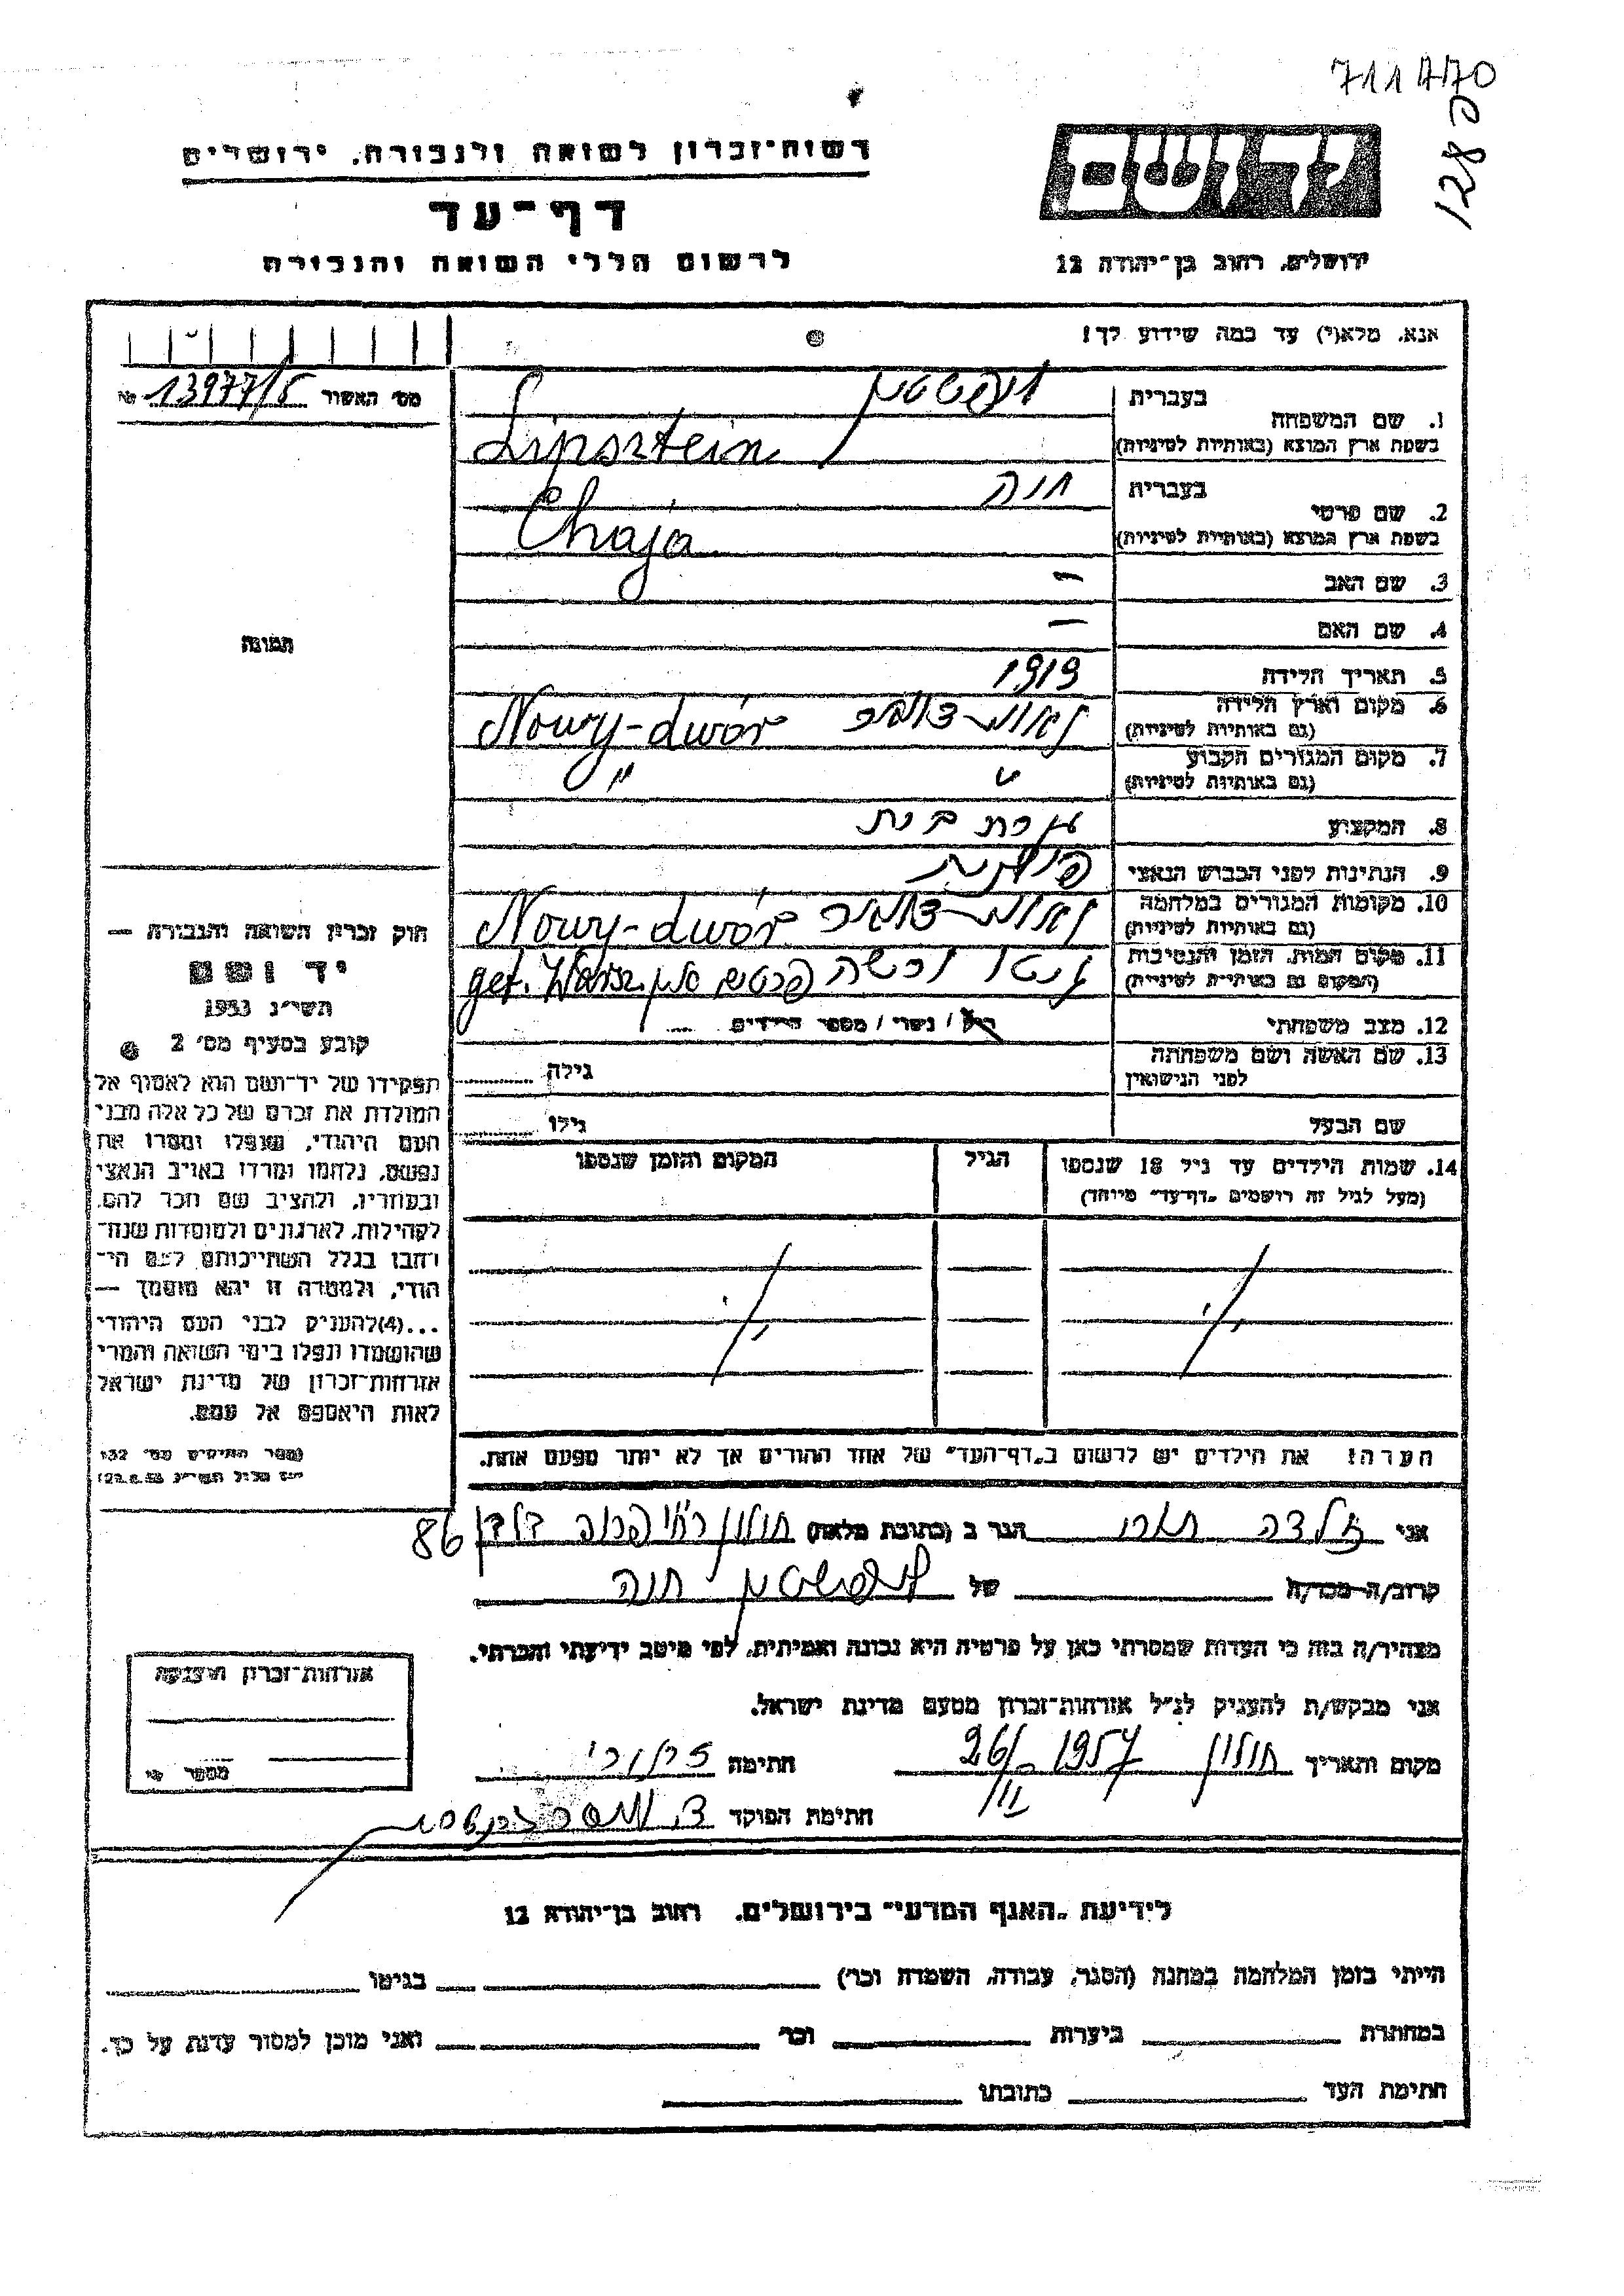 711470
128 פ
יד ושם
רשות-זכרון לשואה ולגבורה, ירושלים
דף-עד
לרשום חללי השואה והגבורה
ירושלים, רחוב בן-יהודה 12
אנא, מלא(י) עד כמה שידוע לך!
מס' האשור 13977/5 №
1. שם המשפחה
בעברית ליפשטיין
בשפת ארץ המוצא (באותיות לטיניות) Lipsztein
2. שם פרטי
בעברית חיה
בשפת ארץ המוצא (באותיות לטיניות) Chaja
3. שם האב —
4. שם האם —
5. תאריך הלידה 1919
6. מקום וארץ הלידה
(גם באותיות לטיניות) Nowy-dwór
7. מקום המגורים הקבוע
(גם באותיות לטיניות) "
8. המקצוע עקרת בית
9. הנתינות לפני הכבוש הנאצי פולנית
10. מקומות המגורים במלחמה
(גם באותיות לטיניות) Nowy-dwór
11. מקום המות, הזמן והנסיבות
(המקום גם באותיות לטיניות) גיטו ורשה get. Warsz.
12. מצב משפחתי רוק / נשוי / מספר הילדים
13. שם האשה ושם משפחתה
לפני הנישואין גילה
שם הבעל גילו
14. שמות הילדים עד גיל 18 שנספו הגיל המקום והזמן שנספו
(מעל לגיל זה רושמים "דף-עד" מיוחד)
הערה: את הילדים יש לרשום ב"דף-העד" של אחד ההורים אך לא יותר מפעם אחת.
תמונה
חוק זכרון השואה והגבורה —
יד ושם
תשי"ג 1953
קובע בסעיף מס' 2
תפקידו של יד-ושם הוא לאסוף אל
המולדת את זכרם של כל אלה מבני
העם היהודי, שנפלו ומסרו את
נפשם, נלחמו ומרדו באויב הנאצי
ובעוזריו, ולהציב שם וזכר להם,
לקהילות, לארגונים ולמוסדות שנח-
רבו בגלל השתייכותם לעם הי-
הודי, ולמטרה זו יהא מוסמך —
...(4)להעניק לבני העם היהודי
שהושמדו ונפלו בימי השואה והמרי
אזרחות-זכרון של מדינת ישראל
לאות היאספם אל עמם.
(ספר החוקים מס' 132
י"ז אלול תשי"ג 28.8.53)
אני זלדה הגר ב (כתובת מלאה) חולון 86
קרוב/ה מכר/ה של ליפשטיין חיה
מצהיר/ה בזה כי העדות שמסרתי כאן על פרטיה היא נכונה ואמיתית, לפי מיטב ידיעתי והכרתי.
אני מבקש/ת להעניק לנ"ל אזרחות-זכרון מטעם מדינת ישראל.
מקום ותאריך חולון 26/III 1957 חתימה
חתימת הפוקד
אזרחות-זכרון הוענקה
מספר
לידיעת "האגף המדעי" בירושלים, רחוב בן-יהודה 12
הייתי בזמן המלחמה במחנה (הסגר, עבודה, השמדה וכר') בגיטו
במחתרת ביערות וכר' ואני מוכן למסור עדות על כך.
חתימת העד כתובתו